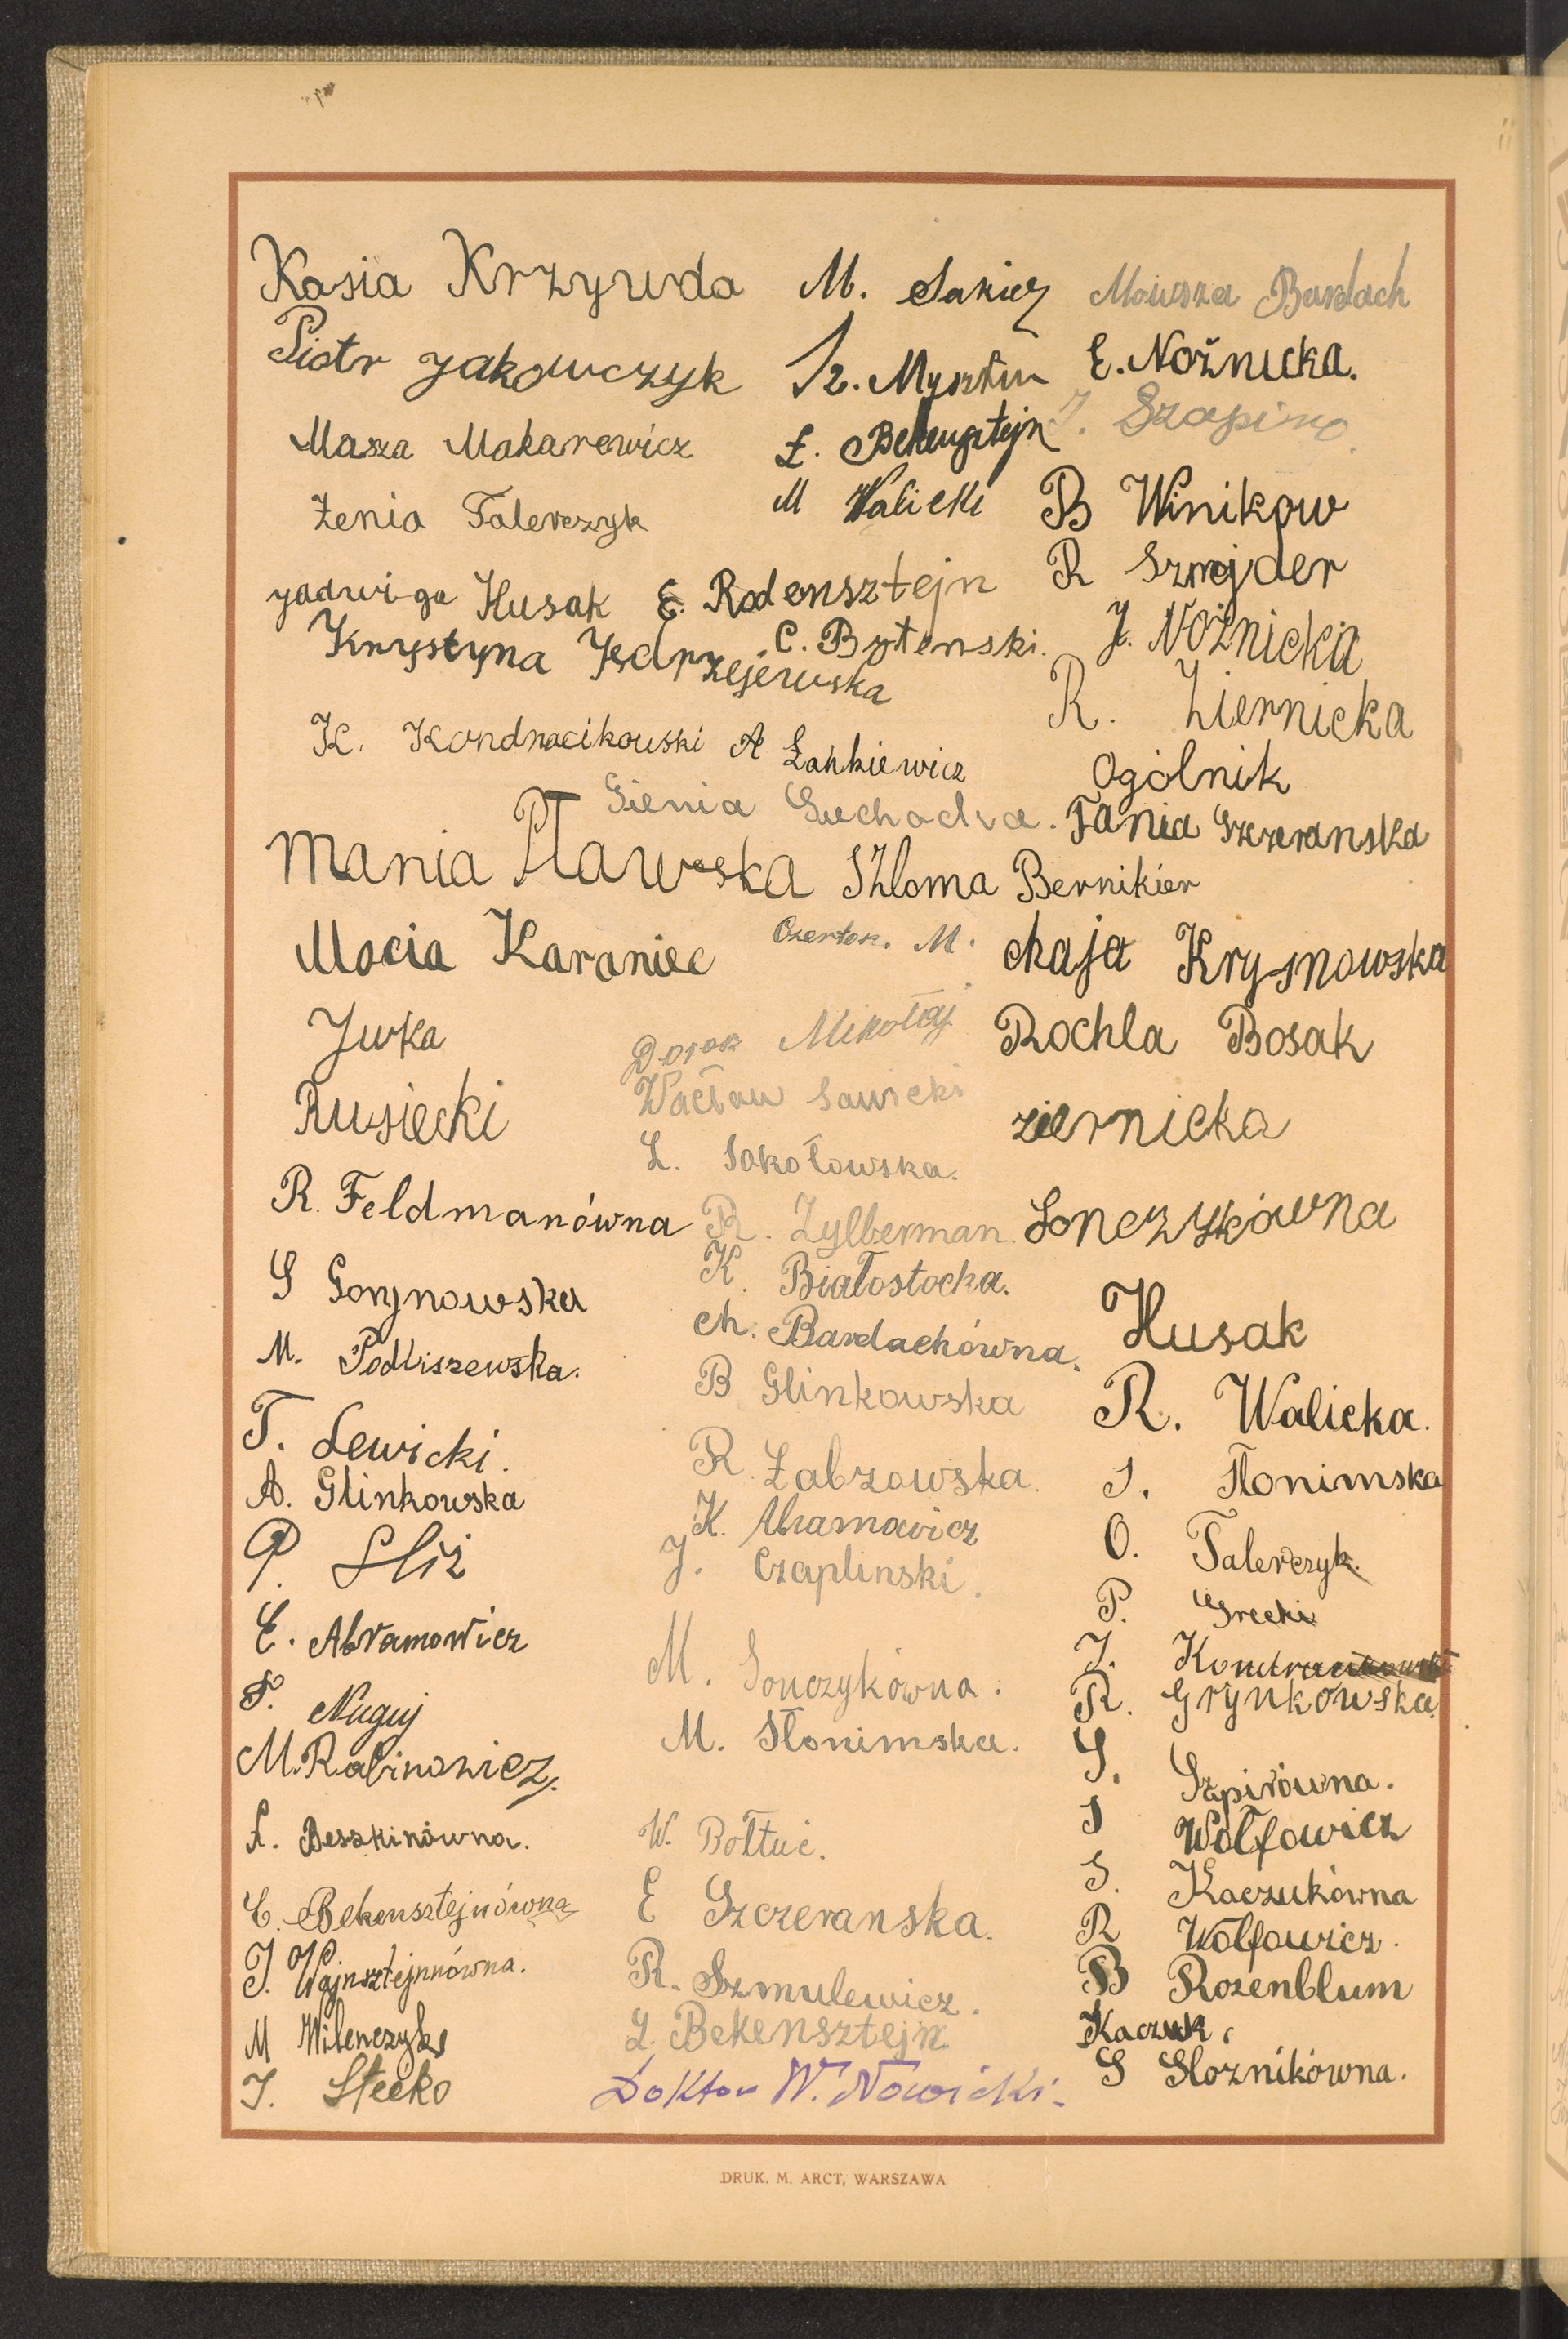 Kasia Krzywda M. Sakier Mowsza Bardach
Piotr Jakowczyk Sz. Mysztin E. Nożnicka.
Masza Makarewicz Ł. Bekensztejn J. Szapiro
Żenia Talerczyk M Walicki B Winikow
Jadwiga Husak E. Rodensztejn R Sznejder
Krystyna Jędrzejewska C. Bytenski. J. Nożnicka
K. Kondracikowski A Łahkiewicz R. Ziernicka
Ogólnik
Gienia Suchodra. Fania Szczeranska
Mania Pławska Szloma Bernikier
Mocia Karaniec Czertok. M. Chaja Krysnowska
Jurka Dorosz Mikołaj Rochla Bosak
Rusiecki Wacław Sawicki ziernicka
L. Sokołowska.
R. Feldmanówna R. Zylberman. Sonczykówna
S Gorynowska K. Białostocka.
M. Podliszewska. Ch. Bardachówna. Husak
B Glinkowska R. Walicka.
T. Lewicki. R. Żabzowska. S. Słonimska
A. Glinkowska K. Abramowicz O. Talerczyk.
P. Śliż J. Czaplinski. P. Grecki
E. Abramowicz M. Sonczykówna. J. Kondracikowski
F. Nuguj R. Grynkowska.
M. Rabinowicz. M. Słonimska. S. Szpirówna.
F. Beszkinówna. W. Bołtuć. S Wołfowicz
C. Bekensztejnówna E Szczeranska. S. Kaczukówna
R Wołfowicz.
J. Wajnsztejnnówna. R. Szmulewicz. B Rozenblum
M Wilenczyk L. Bekensztejn. Kaczuk.
J. Stecko Doktor W. Nowicki. S Słoznikówna.
DRUK. M. ARCT, WARSZAWA